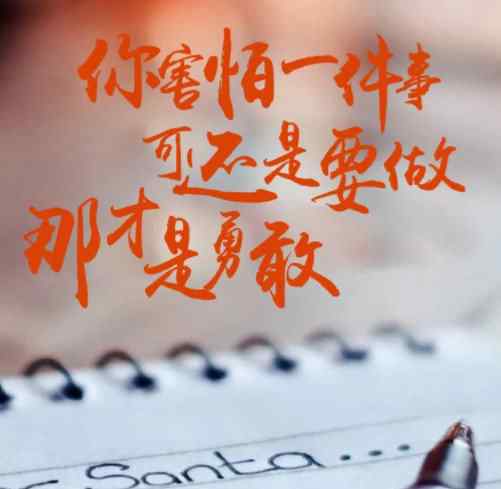 你害怕一件事
可还是要做
那才是勇敢
r Santa...